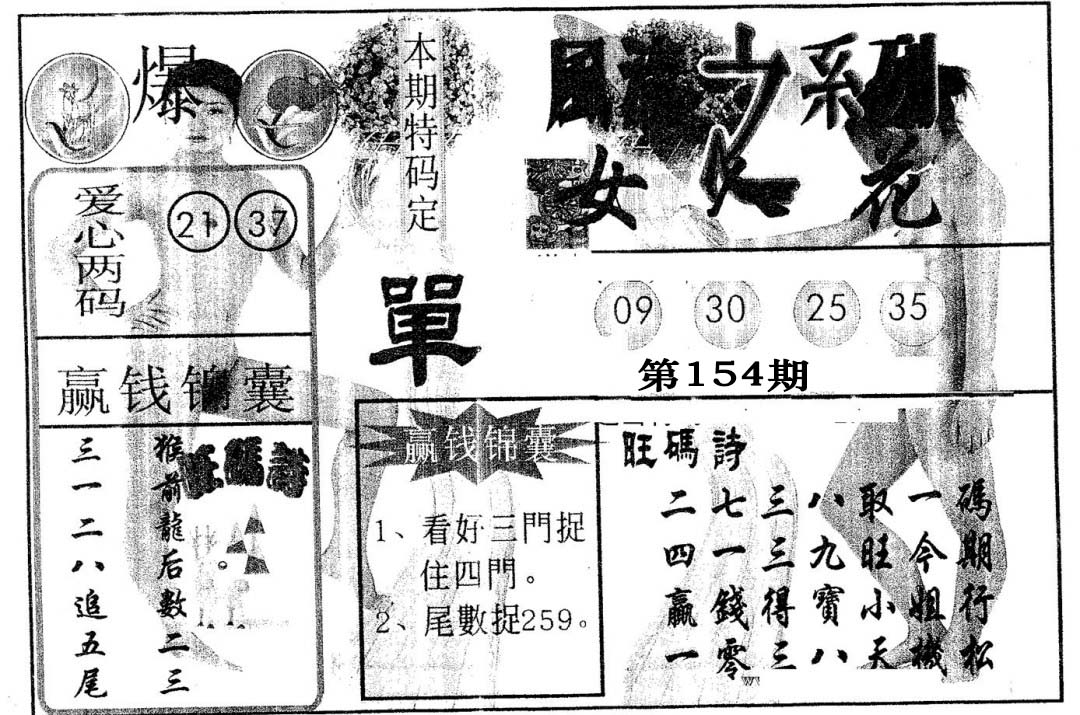 爆
本期特码定
單
之系列
女 花
爱心两码
21 37
09 30 25 35
第154期
赢钱锦囊
猴前龍后數二三
三一二八追五尾
旺碼詩
赢钱锦囊
1、看好三門捉
住四門。
2、尾數捉259。
旺碼詩
二七三八取一碼
四一三九旺今期
赢錢得寶小姐行
一零三八天機松